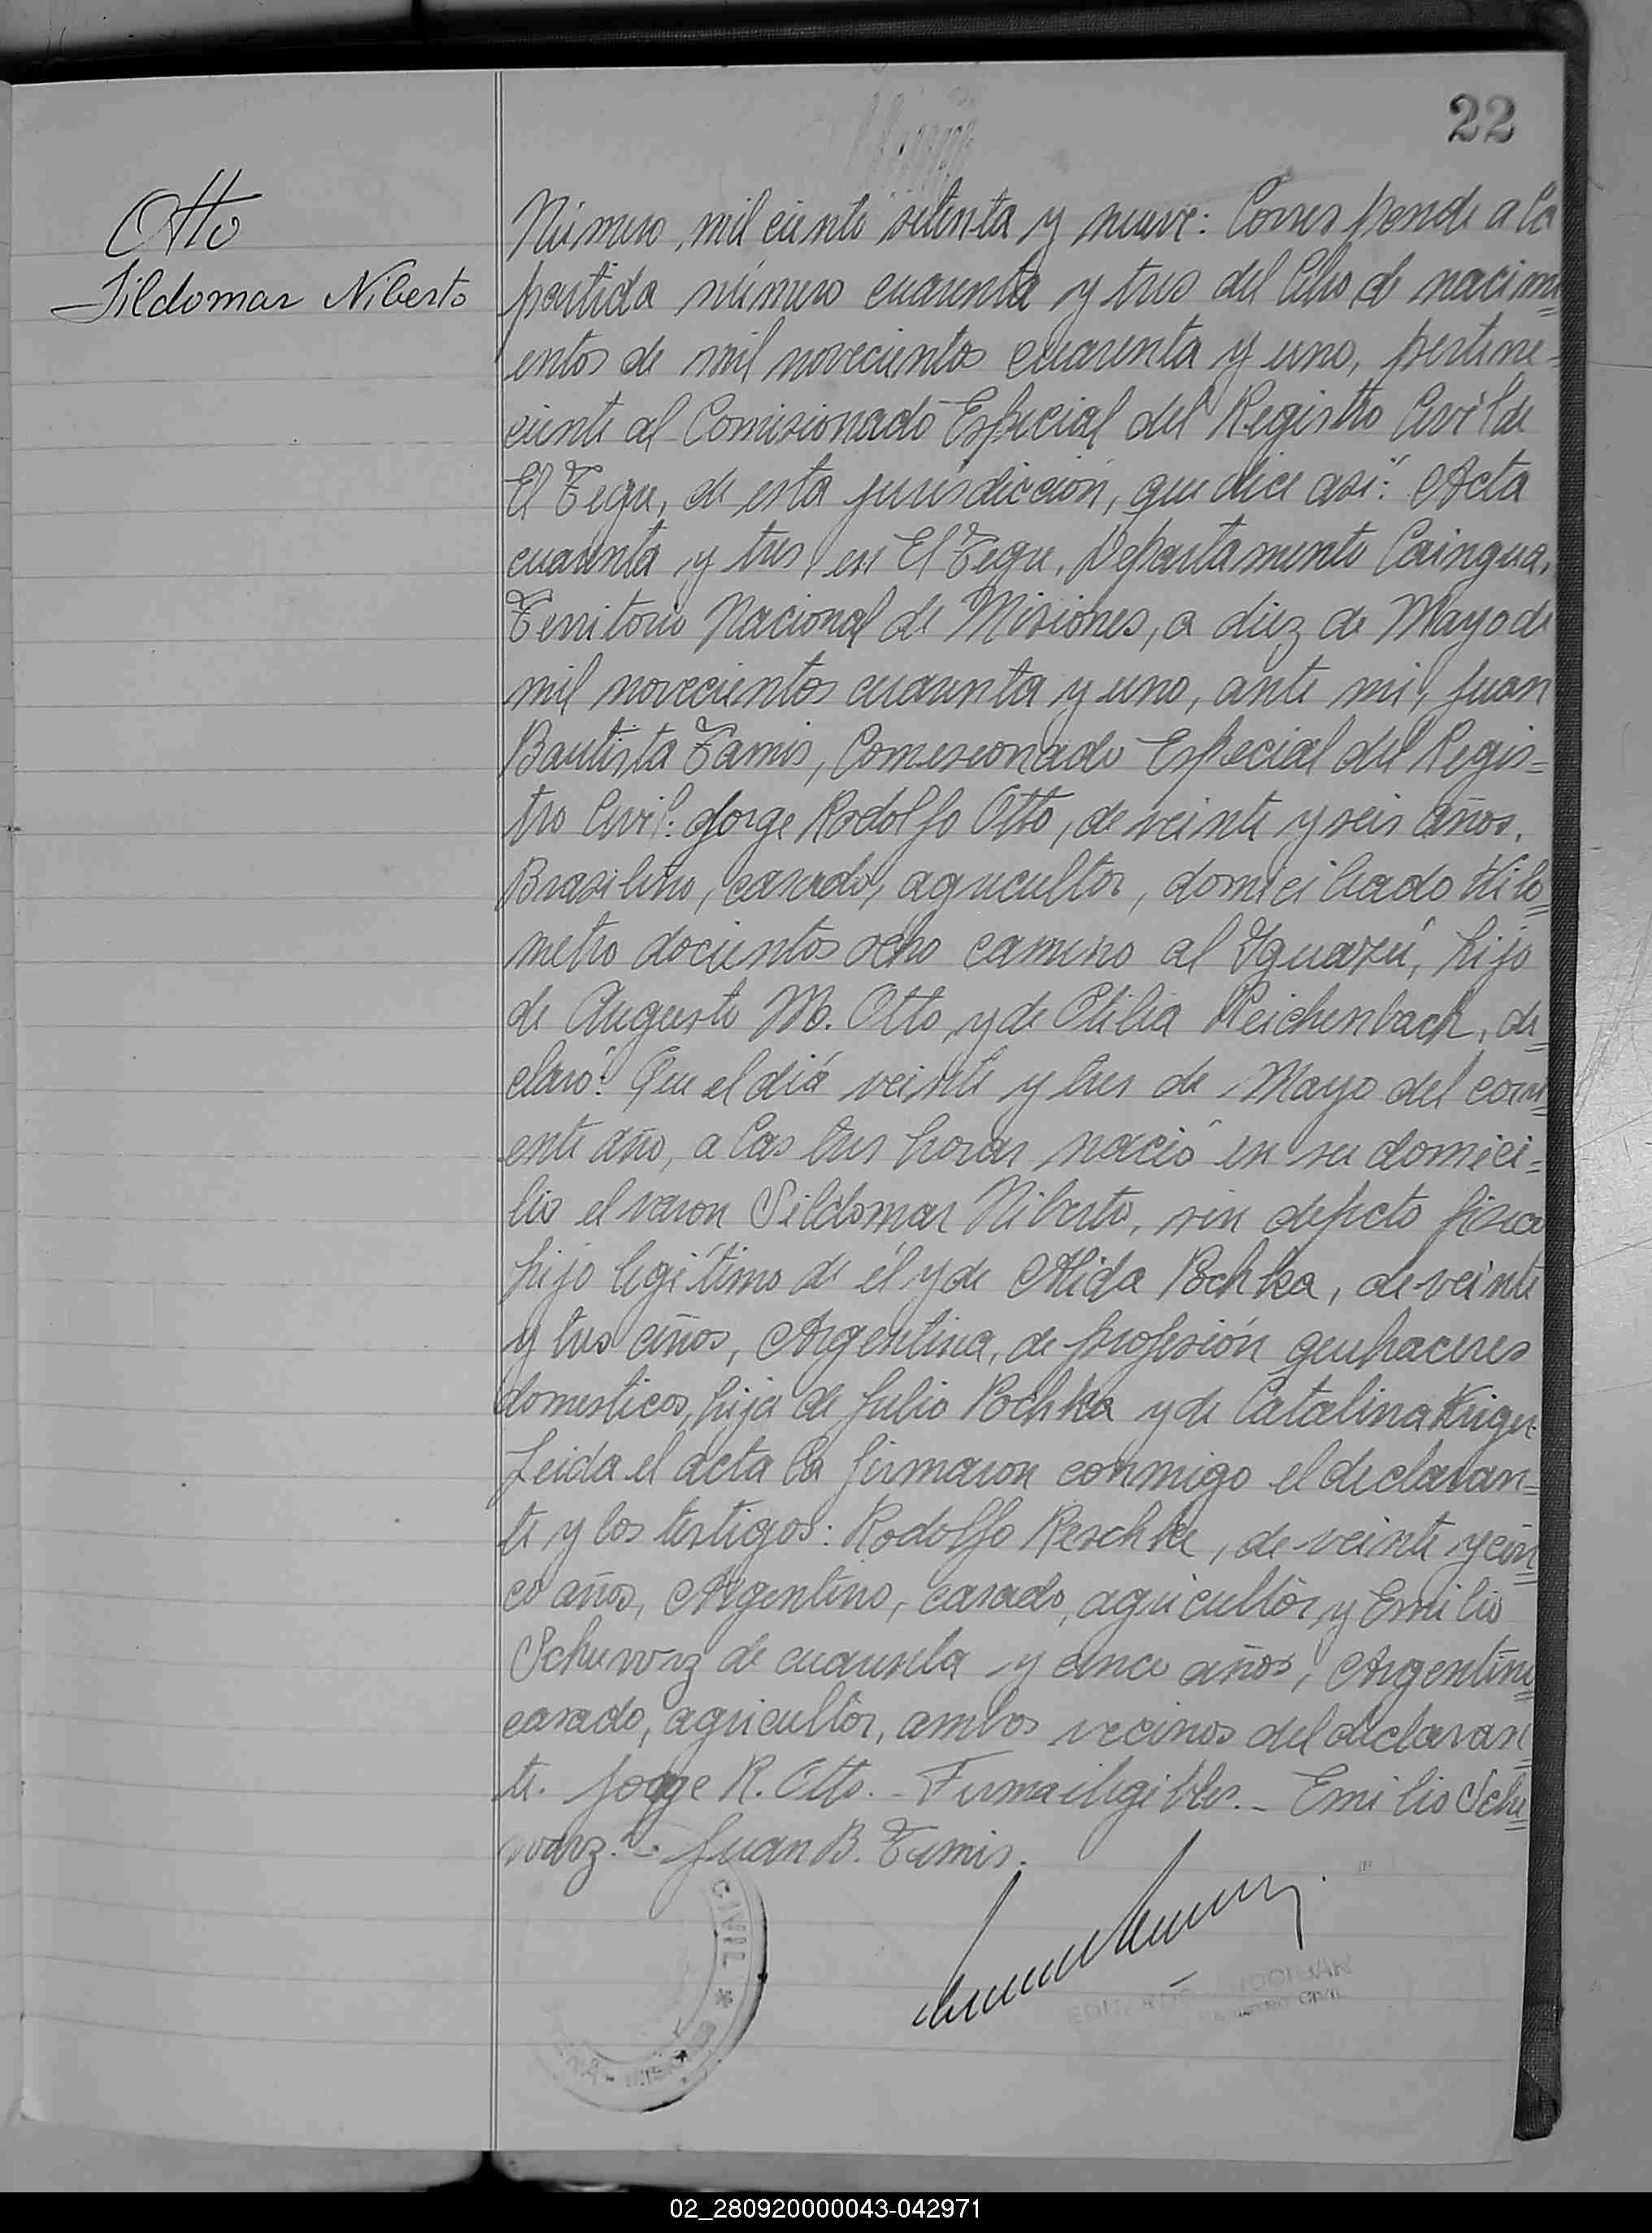 22
Otto
Sildomar Niberto
Número mil ciento setenta y nueve: Corresponde a la
partida número cuarenta y tres del libro de nacimi=
entos de mil novecientos cuarenta y uno, pertene=
ciente al Comisionado Especial del Registro Civil de
El Tegu, de esta jurisdicción, que dice asi: Acta
cuarenta y tres en El Tegu, Departamento Caingua,
Territorio Nacional de Misiones, a diez de Mayo de
mil novecientos cuarenta y uno, ante mi, Juan
Bautista Tamis, Comisionado Especial del Regis=
tro Civil: Jorge Rodolfo Otto, de veinte y seis años,
Brasileño, casado, agricultor, domiciliado Kilo=
metro docientos ocho camino al Iguazú, hijo
de Augusto M. Otto y de Otilia Reichenbach, de=
claró: Que el día veinte y tres de Mayo del corri=
ente año, a las tres horas nació en su domici=
lio el varon Sildomar Niberto, sin defecto fisico
hijo legítimo de él y de Alida Pochka, de veinte
y tres años, Argentina, de profesión quehaceres
domesticos, hija de Julio Pochka y de Catalina Kriger
Leida el acta la firmaron conmigo el declaran=
te y los testigos: Rodolfo Reschke, de veinte y cin=
co años, Argentino, casado, agricultor y Emilio
Schuvarz de cuarenta y cinco años, Argentino
casado, agricultor, ambos vecinos del declaran=
te. Jorge R. Otto. - Firma ilegibles. - Emilio Schu=
warz. - Juan B. Tamis.
CIVIL *
CIVIL
02_280920000043-042971